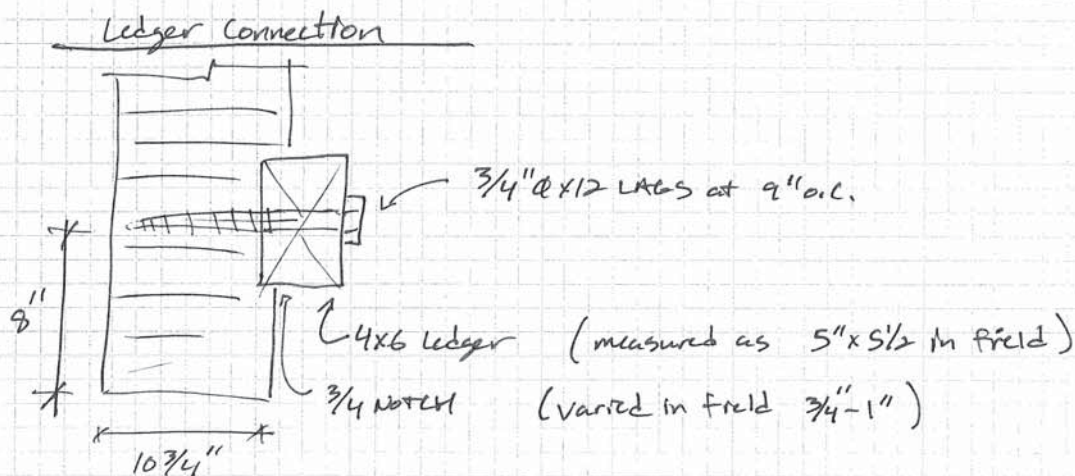 Ledger Connection
3/4"Ø x12 LAGS at 9" o.c.
8"
4x6 Ledger (measured as 5"x 5 1/2 in field)
3/4 NOTCH (varied in field 3/4"-1")
10 3/4"